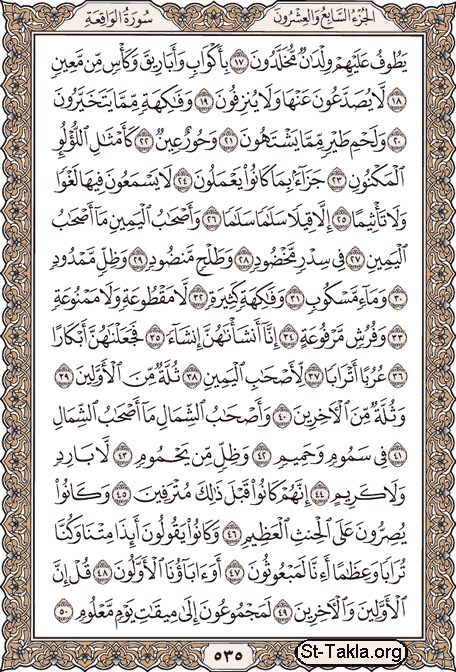 الجزء السابع والعشرون سورة الواقعة
يَطُوفُ عَلَيْهِمْ وِلْدَٰنٌ مُّخَلَّدُونَ ١٧ بِأَكْوَابٍ وَأَبَارِيقَ وَكَأْسٍ مِّن مَّعِينٍ
١٨ لَّا يُصَدَّعُونَ عَنْهَا وَلَا يُنزِفُونَ ١٩ وَفَٰكِهَةٍ مِّمَّا يَتَخَيَّرُونَ
٢٠ وَلَحْمِ طَيْرٍ مِّمَّا يَشْتَهُونَ ٢١ وَحُورٌ عِينٌ ٢٢ كَأَمْثَٰلِ ٱللُّؤْلُؤِ
ٱلْمَكْنُونِ ٢٣ جَزَآءًۢ بِمَا كَانُوا۟ يَعْمَلُونَ ٢٤ لَا يَسْمَعُونَ فِيهَا لَغْوًا
وَلَا تَأْثِيمًا ٢٥ إِلَّا قِيلًا سَلَٰمًا سَلَٰمًا ٢٦ وَأَصْحَٰبُ ٱلْيَمِينِ مَآ أَصْحَٰبُ
ٱلْيَمِينِ ٢٧ فِى سِدْرٍ مَّخْضُودٍ ٢٨ وَطَلْحٍ مَّنضُودٍ ٢٩ وَظِلٍّ مَّمْدُودٍ
٣٠ وَمَآءٍ مَّسْكُوبٍ ٣١ وَفَٰكِهَةٍ كَثِيرَةٍ ٣٢ لَّا مَقْطُوعَةٍ وَلَا مَمْنُوعَةٍ
٣٣ وَفُرُشٍ مَّرْفُوعَةٍ ٣٤ إِنَّآ أَنشَأْنَٰهُنَّ إِنشَآءً ٣٥ فَجَعَلْنَٰهُنَّ أَبْكَارًا
٣٦ عُرُبًا أَتْرَابًا ٣٧ لِّأَصْحَٰبِ ٱلْيَمِينِ ٣٨ ثُلَّةٌ مِّنَ ٱلْأَوَّلِينَ ٣٩
وَثُلَّةٌ مِّنَ ٱلْءَاخِرِينَ ٤٠ وَأَصْحَٰبُ ٱلشِّمَالِ مَآ أَصْحَٰبُ ٱلشِّمَالِ
٤١ فِى سَمُومٍ وَحَمِيمٍ ٤٢ وَظِلٍّ مِّن يَحْمُومٍ ٤٣ لَّا بَارِدٍ
وَلَا كَرِيمٍ ٤٤ إِنَّهُمْ كَانُوا۟ قَبْلَ ذَٰلِكَ مُتْرَفِينَ ٤٥ وَكَانُوا۟
يُصِرُّونَ عَلَى ٱلْحِنثِ ٱلْعَظِيمِ ٤٦ وَكَانُوا۟ يَقُولُونَ أَئِذَا مِتْنَا وَكُنَّا
تُرَابًا وَعِظَٰمًا أَءِنَّا لَمَبْعُوثُونَ ٤٧ أَوَءَابَآؤُنَا ٱلْأَوَّلُونَ ٤٨ قُلْ إِنَّ
ٱلْأَوَّلِينَ وَٱلْءَاخِرِينَ ٤٩ لَمَجْمُوعُونَ إِلَىٰ مِيقَٰتِ يَوْمٍ مَّعْلُومٍ ٥٠
٥٣٥
St-Takla.org